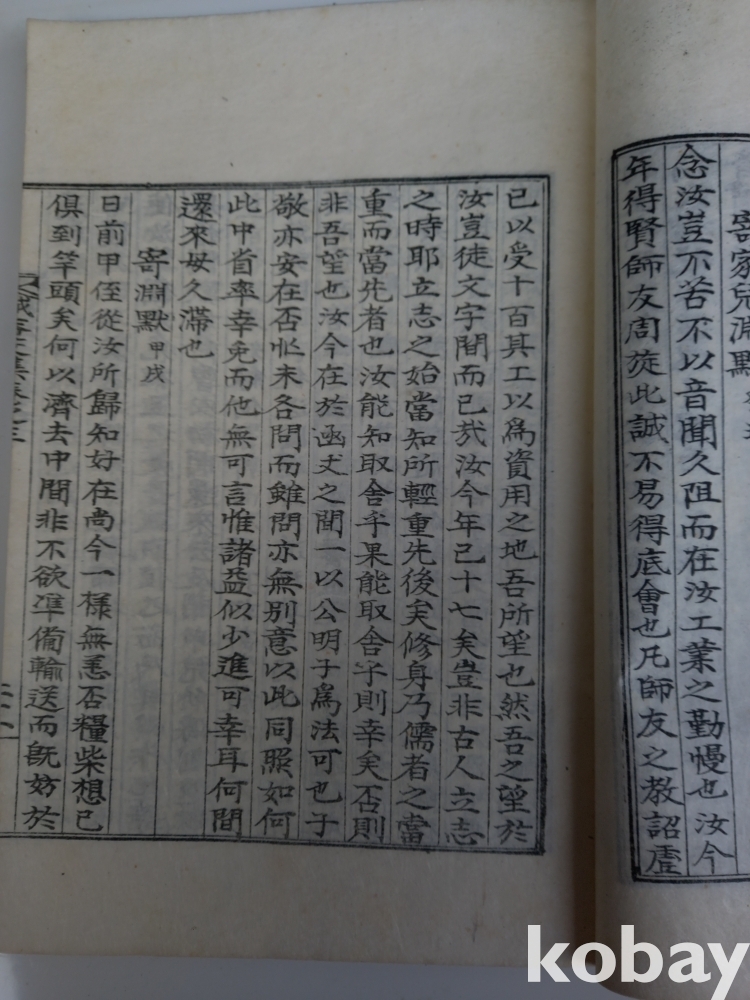 寄家兒淵默
念汝豈不苦不以音聞久阻而在汝工業之勤慢也汝今
年得賢師友周旋此誠不易得底會也凡師友之教詔虛
已以受十百其工以爲資用之地吾所望也然吾之望於
汝豈徒文字間而已哉汝今年已十七矣豈非古人立志
之時耶立志之始當知所輕重先後矣修身乃儒者之當
重而當先者也汝能知取舍乎果能取舍乎則幸矣否則
非吾望也汝今在於函丈之間一以公明子爲法可也子
敬亦安在否忙未各問而雖問亦無別意以此同照如何
此中省率幸免而他無可言惟諸益似少進可幸耳何間
還來毋久滯也
寄淵默 甲戌
日前甲侄從汝所歸知好在尚今一樣無恙否糧柴想已
俱到竿頭矣何以濟去中間非不欲準備輸送而旣妨於
kobay